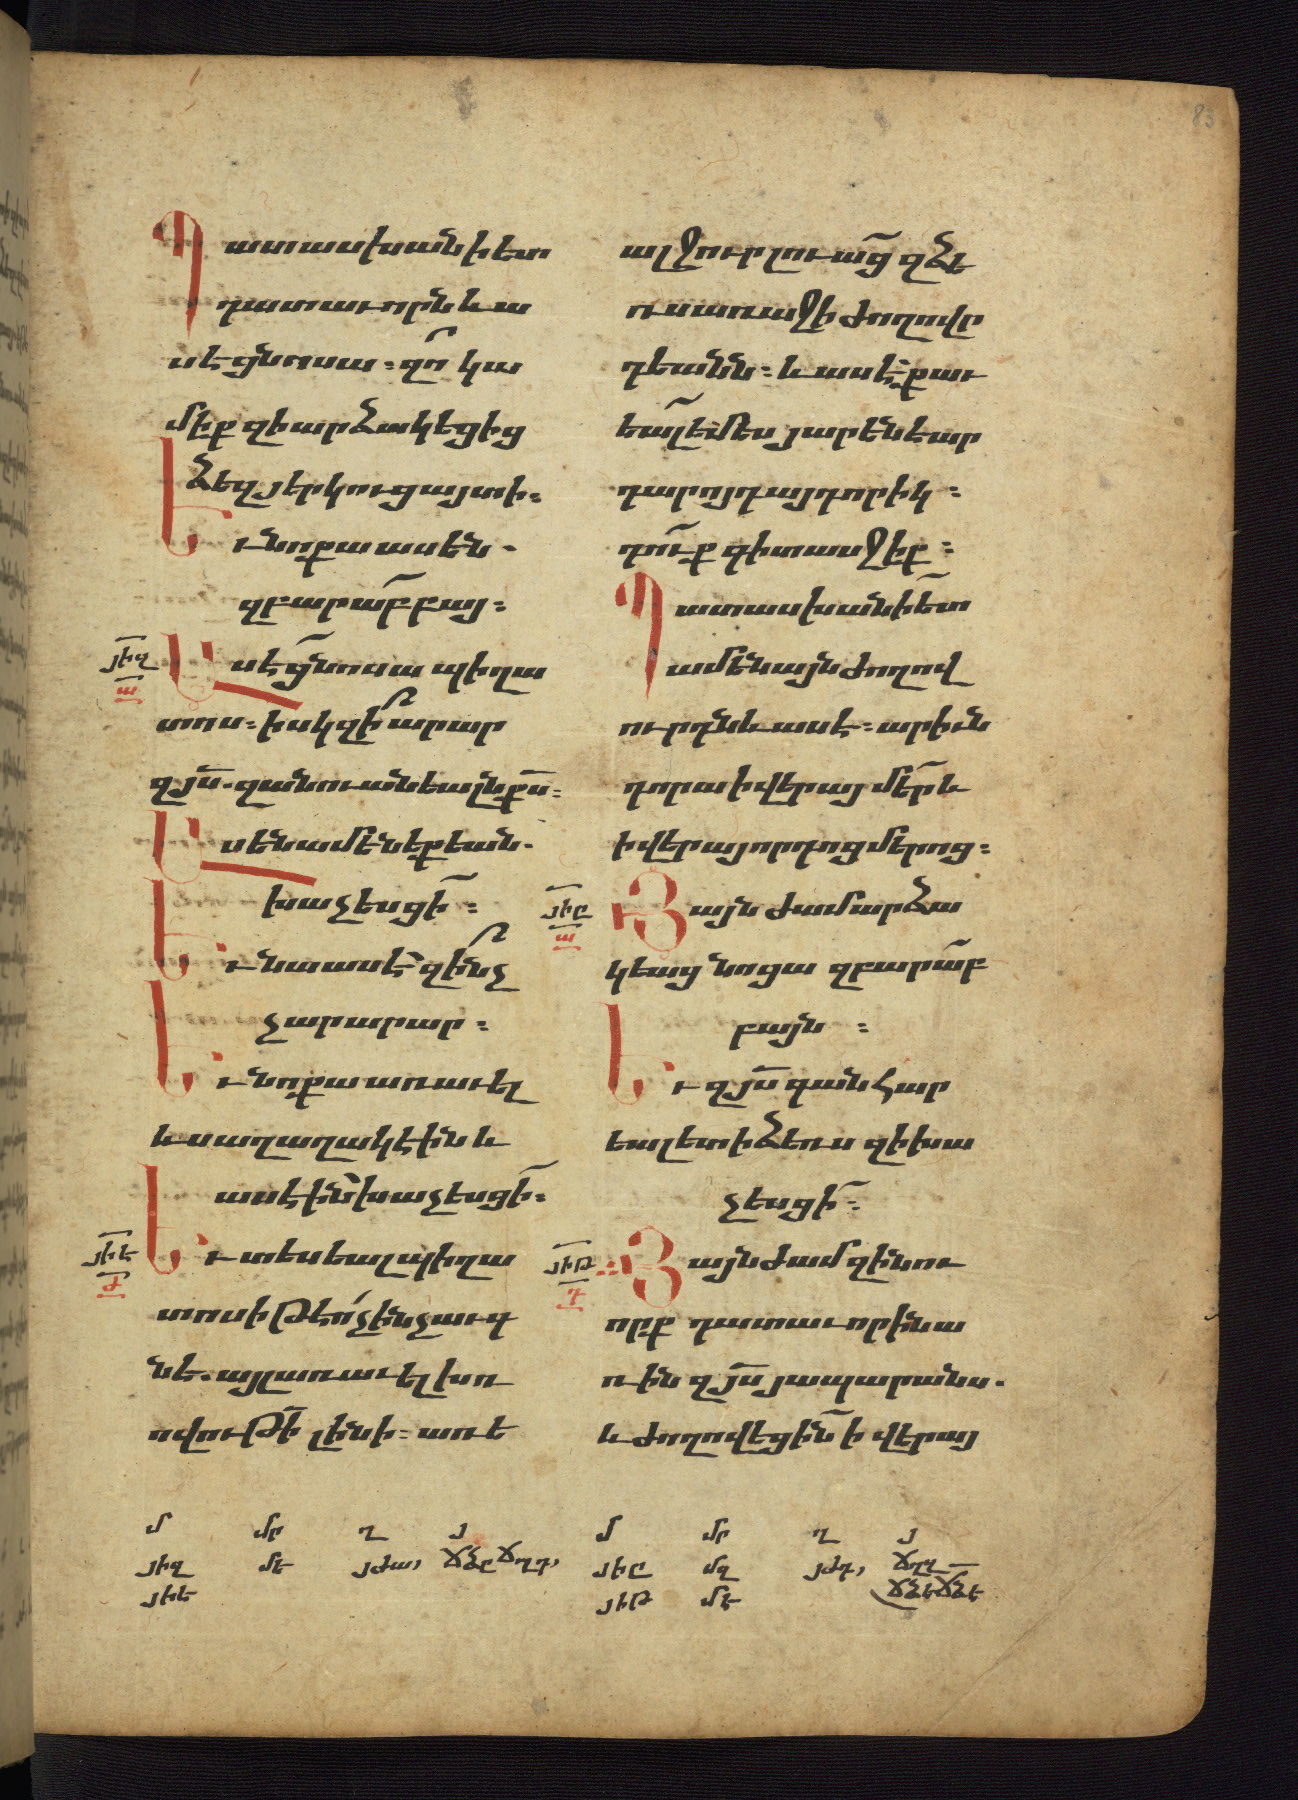 Պատասխանի ետ
դատաւորն և ա
սէ ցնոսա։ զո՞ կա
միք զի արձակեցից
ձեզ յերկուց այտի։
Եւ նոքա ասեն.
զբարաբբայ։
Ասէ ցնոսա պիղա
տոս։ իսկ զի՞ արարից
զյս. զանուանեալն քս։
Ասեն ամենեքեան.
խաչեսցի։
Եւ նա ասէ զինչ
չար արար։
Եւ նոքա առաւել
ևս աղաղակէին և
ասէին խաչեսցի։
Եւ տեսեալ պիղա
տոսի թէ ոչ ինչ աւգ
նէ. այլ առաւել խռ
ովութի լինի։ առե
ալ ջուր լուաց զձե
ռս առաջի ժողովր
դեանն։ և ասէ քաւ
եալ եմ ես յարենէ ար
դարոյդ այդորիկ։
դուք գիտասջիք։
Պատասխանի ետ
ամենայն ժողով
ուրդն և ասէ։ արիւն
դորա ի վերայ մեր և
ի վերայ որդոց մերոց։
Յայնժամ արձա
կեաց նոցա զբարաբ
բայն։
Եւ զյս գան հար
եալ ետ ի ձեռս զի խա
չեսցի։
Յայնժամ զինու
որք դատաւորին ա
ռին զյս յապարանս.
և ժողովեցին ի վերայ
յիզ
ա
յիէ
ժ
յիը
ա
յիթ
դ
մ մր ղ յ
յիզ մե յժա,
յիե
մ մր ղ յ
յիը մզ յժդ,
յիթ մէ
83